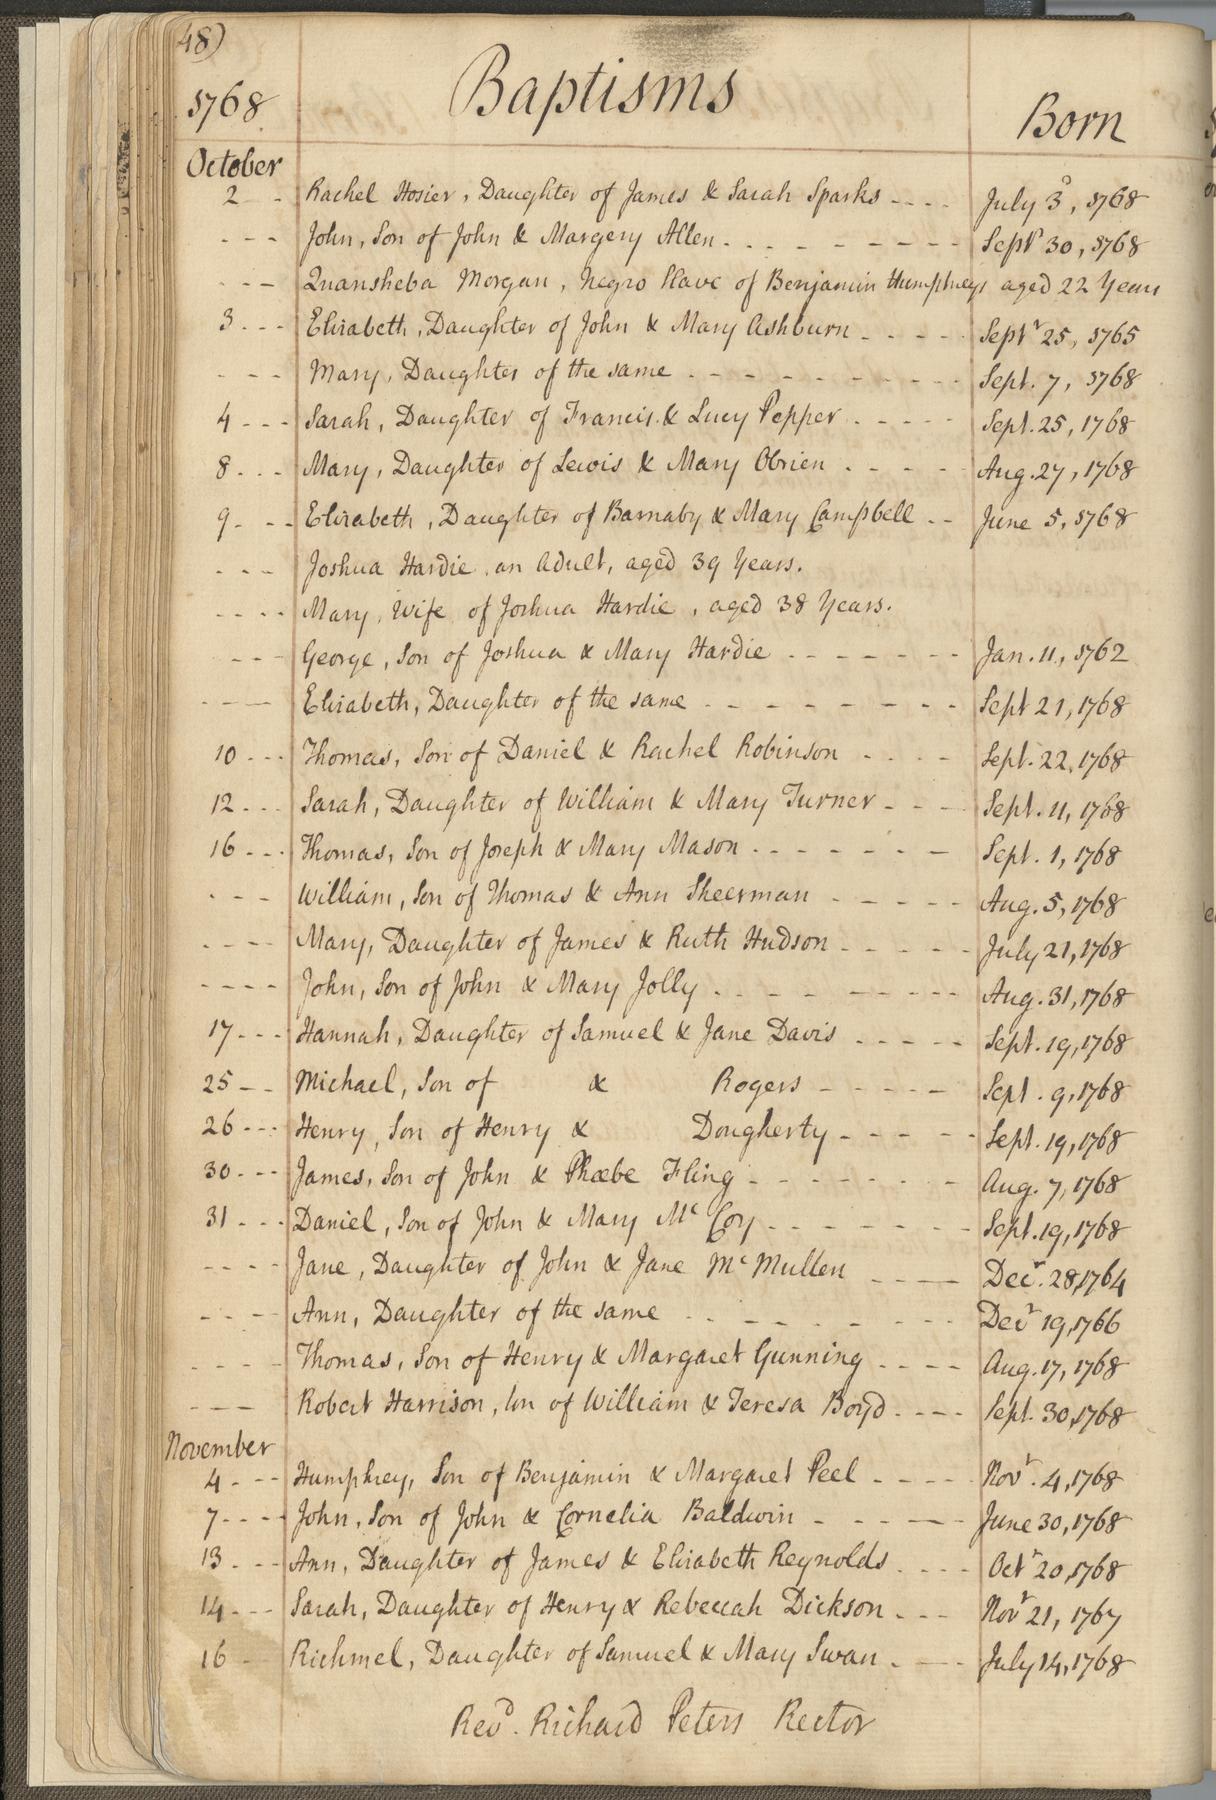 48)
1768 Baptisms Born
October
2 - - Rachel Hosier, Daughter of James & Sarah Sparks - - - - July 3d, 1768
- - - John, Son of John & Margery Allen - - - - - - - - - Septr 30, 1768
- - - Quansheba Morgan, Negro Slave of Benjamin Humphreys aged 22 Years
3 - - - Elizabeth, Daughter of John & Mary Ashburn - - - - - Septr 25, 1765
- - - Mary, Daughter of the same - - - - - - - - - - - Sept. 7, 1768
4 - - - Sarah, Daughter of Francis & Lucy Pepper - - - - - Sept. 25, 1768
8 - - - Mary, Daughter of Lewis & Mary Obrien - - - - - Aug. 27, 1768
9 - - - Elizabeth, Daughter of Barnaby & Mary Campbell - - June 5, 1768
- - - Joshua Hardie, an Adult, aged 39 Years.
- - - - Mary, Wife of Joshua Hardie, aged 38 Years.
- - - George, Son of Joshua & Mary Hardie - - - - - - - Jan. 11, 1762
- - - - Elizabeth, Daughter of the same - - - - - - - - - Sept 21, 1768
10 - - - Thomas, Son of Daniel & Rachel Robinson - - - - Sept. 22, 1768
12 - - - Sarah, Daughter of William & Mary Turner - - - Sept. 11, 1768
16 - - - Thomas, Son of Joseph & Mary Mason - - - - - - - Sept. 1, 1768
- - - William, Son of Thomas & Ann Sheerman - - - - - Aug. 5, 1768
- - - - Mary, Daughter of James & Ruth Hudson - - - - - July 21, 1768
- - - - John, Son of John & Mary Jolly - - - - - - - - - Aug. 31, 1768
17 - - - Hannah, Daughter of Samuel & Jane Davis - - - - - Sept. 19, 1768
25 - - Michael, Son of & Rogers - - - - - Sept. 9, 1768
26 - - - Henry, Son of Henry & Dougherty - - - - - Sept. 19, 1768
30 - - - James, Son of John & Phœbe Fling - - - - - - - Aug. 7, 1768
31 - - - Daniel, Son of John & Mary Mc Coy - - - - - - - Sept. 19, 1768
- - - - Jane, Daughter of John & Jane Mc Mullen - - - - Decr. 28, 1764
- - - - Ann, Daughter of the same - - - - - - - - - Decr 19, 1766
- - - - Thomas, Son of Henry & Margaret Gunning - - - - Aug. 17, 1768
- - - Robert Harrison, Son of William & Teresa Boyd - - - - Sept. 30, 1768
November
4 - - - Humphrey, Son of Benjamin & Margaret Peel - - - - - Novr. 4, 1768
7 - - - - John, Son of John & Cornelia Baldwin - - - - - - June 30, 1768
13 - - - Ann, Daughter of James & Elizabeth Reynolds - - - - Octr 20, 1768
14 - - - Sarah, Daughter of Henry & Rebeccah Dickson - - - Novr 21, 1767
16 - Richmel, Daughter of Samuel & Mary Swan - - - July 14, 1768
Revd. Richard Peters Rector